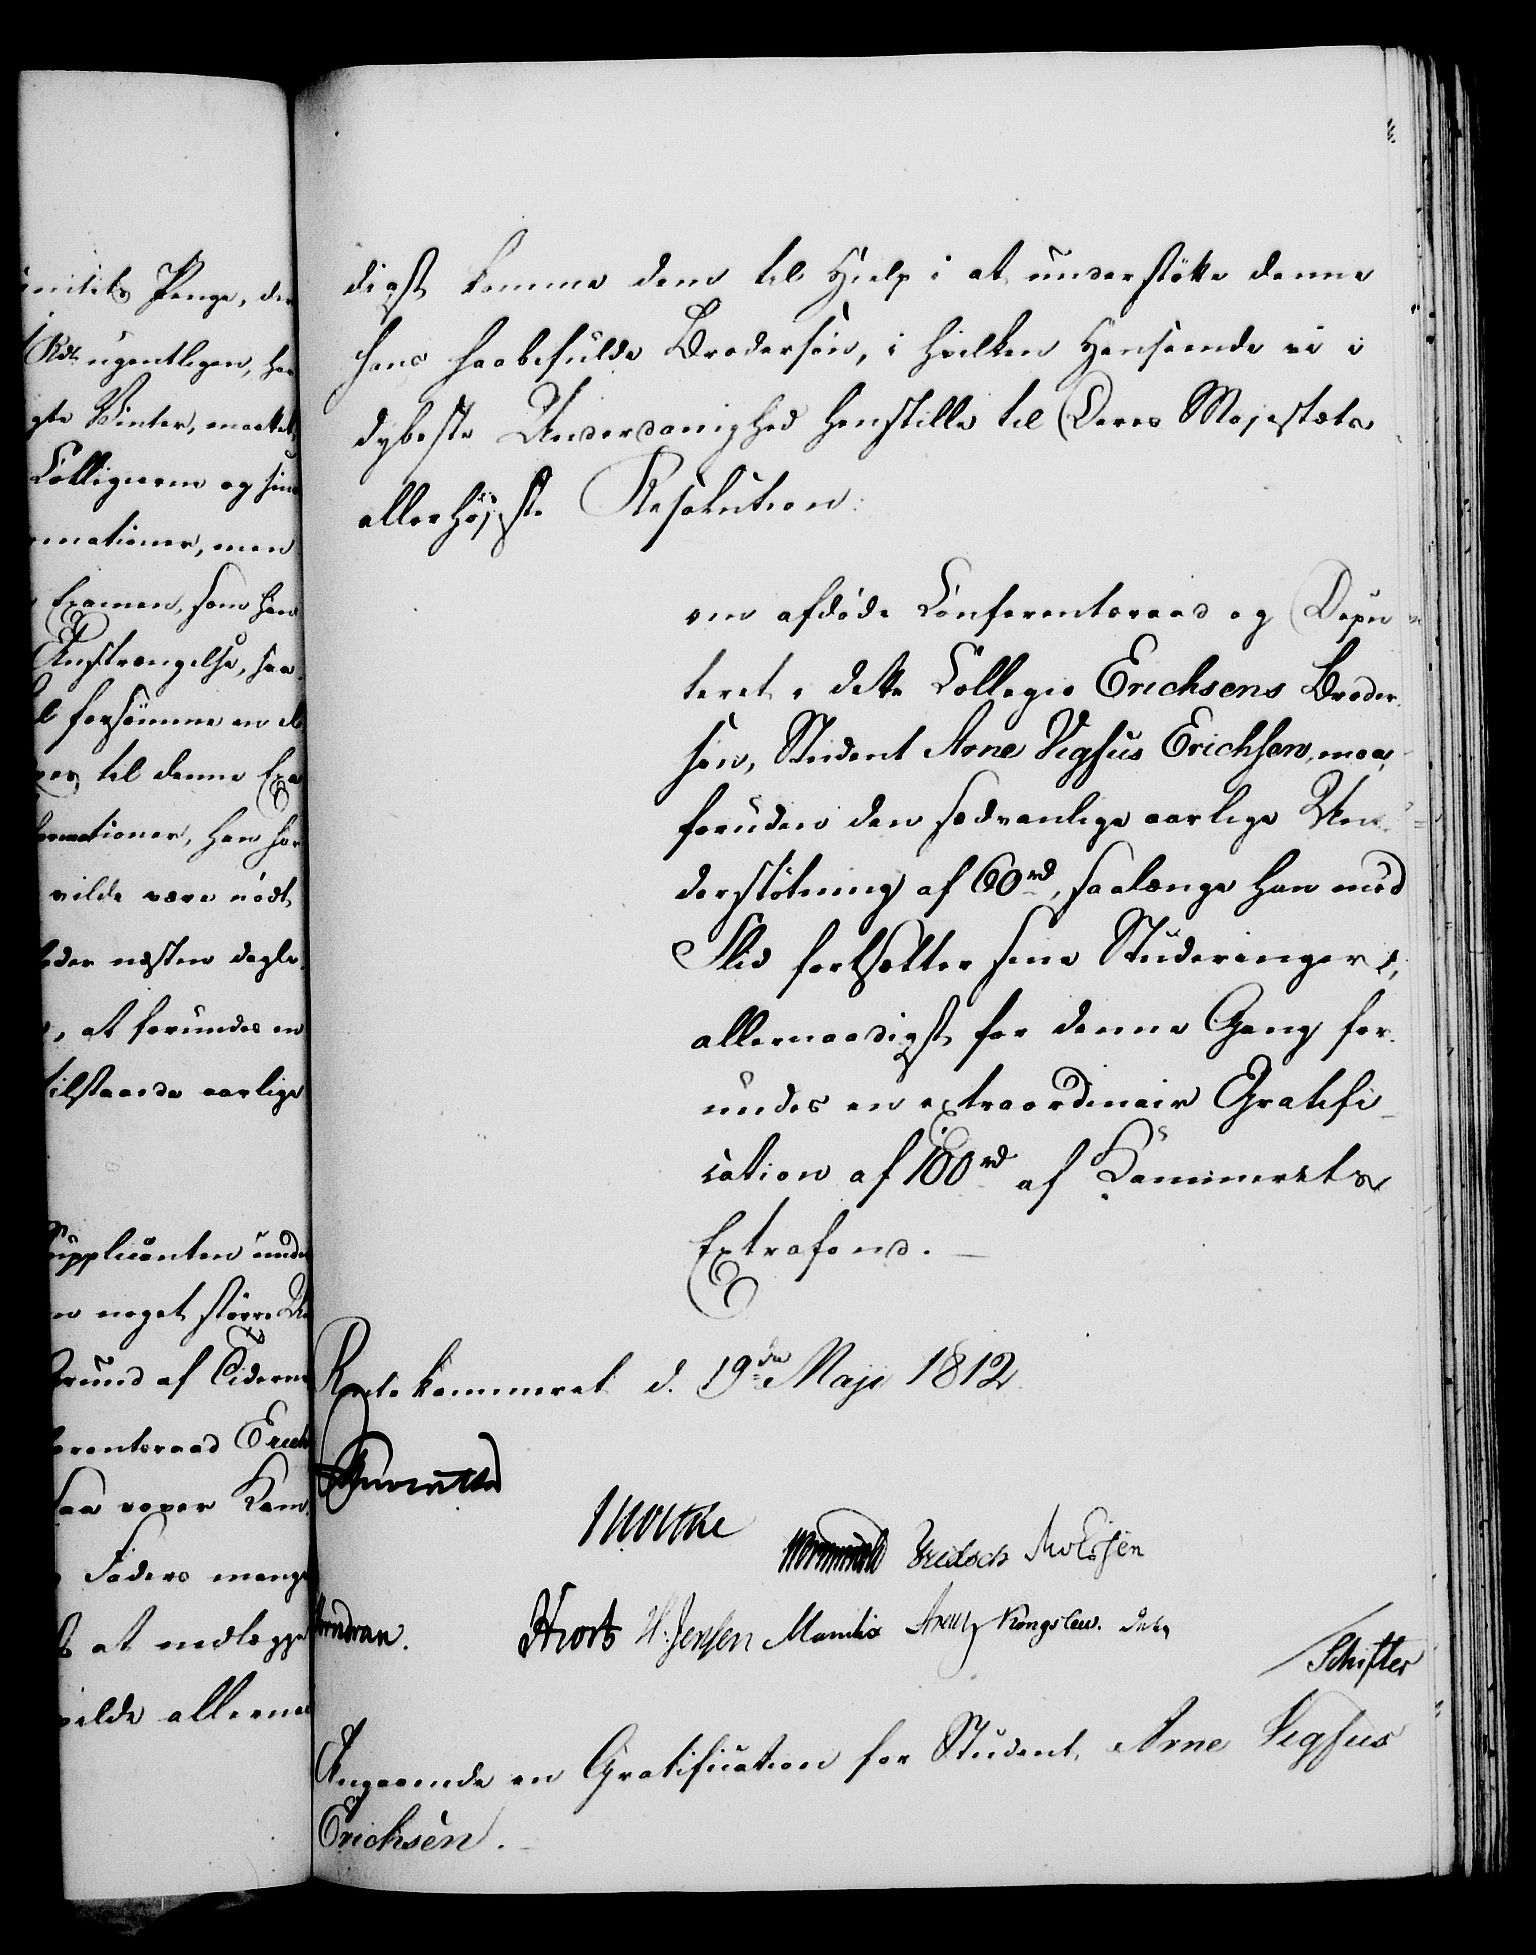 unitets Penge, der
Rdl ugentligen, har
gte Vinter, maattet
Collegierne og sine
rmationer, men
Examen, som han
Anstrængelse, saa
forsömme en el
til denne Exa
formationer, han har
vilde være nödt
eder næsten dagli
, at forundes en
tilstaaede aarlige
Supplicanten unde
en noget större Un
Grund af Tidernes
ferentsraad Erich
saa vover Kam
Faders mange
at nedlægge
vilde allerna
digst komme dem til Hielp i at understötte denne
hans haabefulde Brodersön, i hvilken Henseende vi i
dybeste Underdanighed henstille til Deres Majestæts
allerhöjeste Resolution:
om afdöde Conferentsraad og Depu
teret i dette Collegio Erichsens Broder
sön, Student Arne Vigfus Erichsen, maa,
foruden den sædvanlige aarlige Un
derstötning af 60 rd, saalænge han med
Flid fortsætter sine Studeringer,
allernaadigst for denne Gang for
undes en extraordinair Gratifi
cation af 100 rd af Kammerets
Extrafond.
Rentekammeret d. 19de Maji 1812
Moltke
Wormskiold
Hiort H. Jensen Mandix
Schifter
Angaaende en Gratification for Student Arne Vigfus
Erichsen.